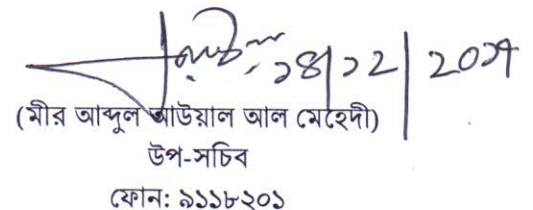 ১৪|১২|২০১৭
(মীর আব্দুল আউয়াল আল মেহেদী)
উপ-সচিব
ফোন: ৯১১৮২০১